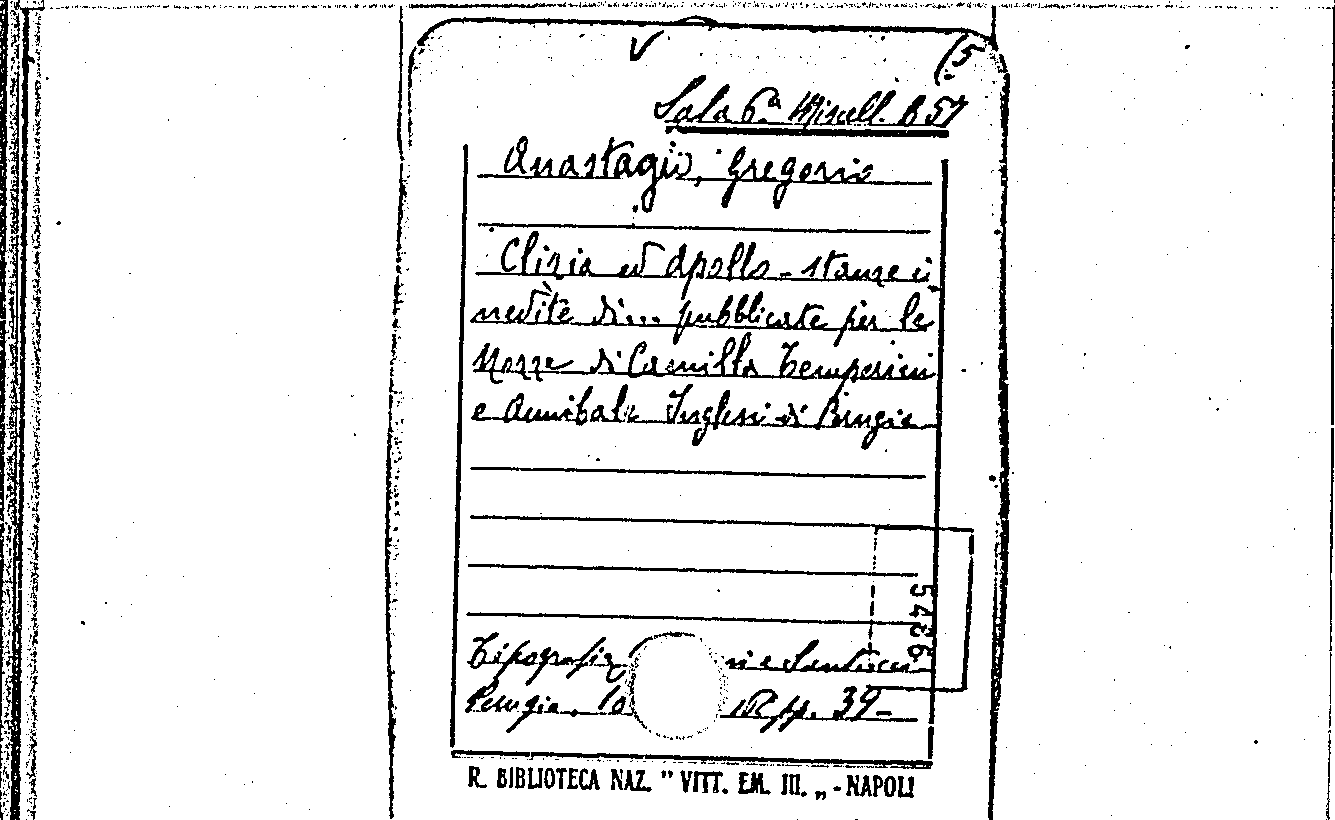 (5
Sala 6ª Miscell. B 57
Anastagi, Gregorio
Clizia ed Apollo - stanze i
nedite di... pubblicate per le
Nozze di Camilla Temperini
e Annibale Inglesi di Perugia
5486
Tipografia ni e Santucci
Perugia. pp. 39-
R. BIBLIOTECA NAZ. " VITT. EM. III. „ - NAPOLI